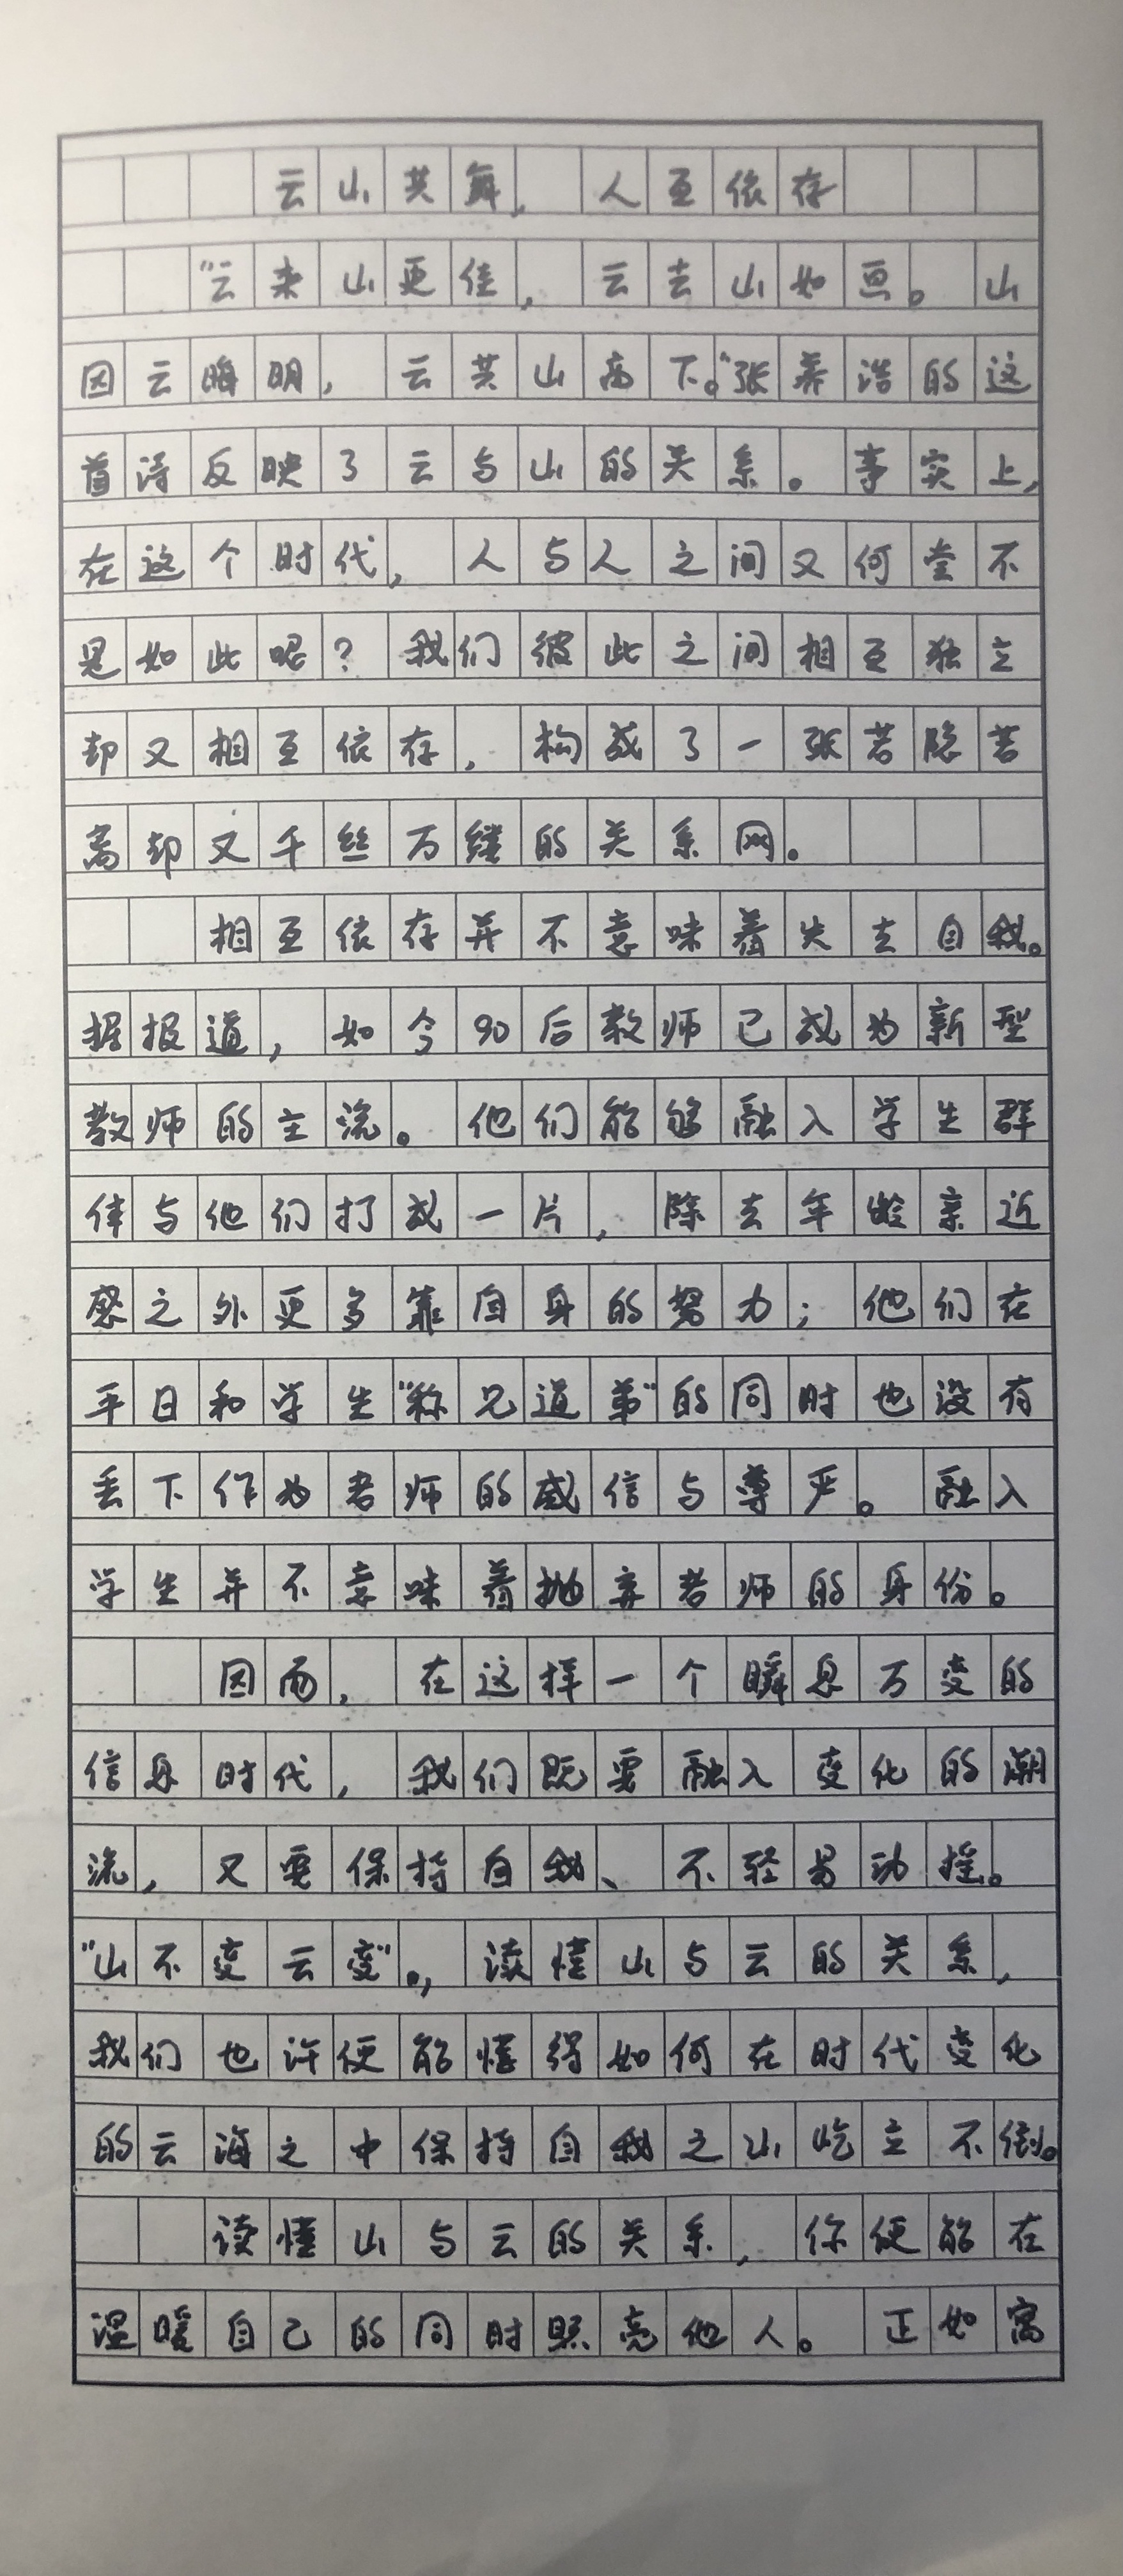 云山共舞，人互依存
“云来山更佳，云去山如画。山
因云晦明，云共山高下。”张养浩的这
首诗反映了云与山的关系。事实上，
在这个时代，人与人之间又何尝不
是如此呢？我们彼此之间相互独立
却又相互依存，构成了一张若隐若
离却又千丝万缕的关系网。
相互依存并不意味着失去自我。
据报道，如今90后教师已成为新型
教师的主流。他们能够融入学生群
体与他们打成一片，除去年龄亲近
感之外更多靠自身的努力；他们在
平日和学生“称兄道弟”的同时也没有
丢下作为老师的威信与尊严。融入
学生并不意味着抛弃老师的身份。
因而，在这样一个瞬息万变的
信息时代，我们既要融入变化的潮
流，又要保持自我、不轻易动摇。
“山不变云变”。，读懂山与云的关系，
我们也许便能懂得如何在时代变化
的云海之中保持自我之山屹立不倒。
读懂山与云的关系，你便能在
温暖自己的同时照亮他人。正如寓